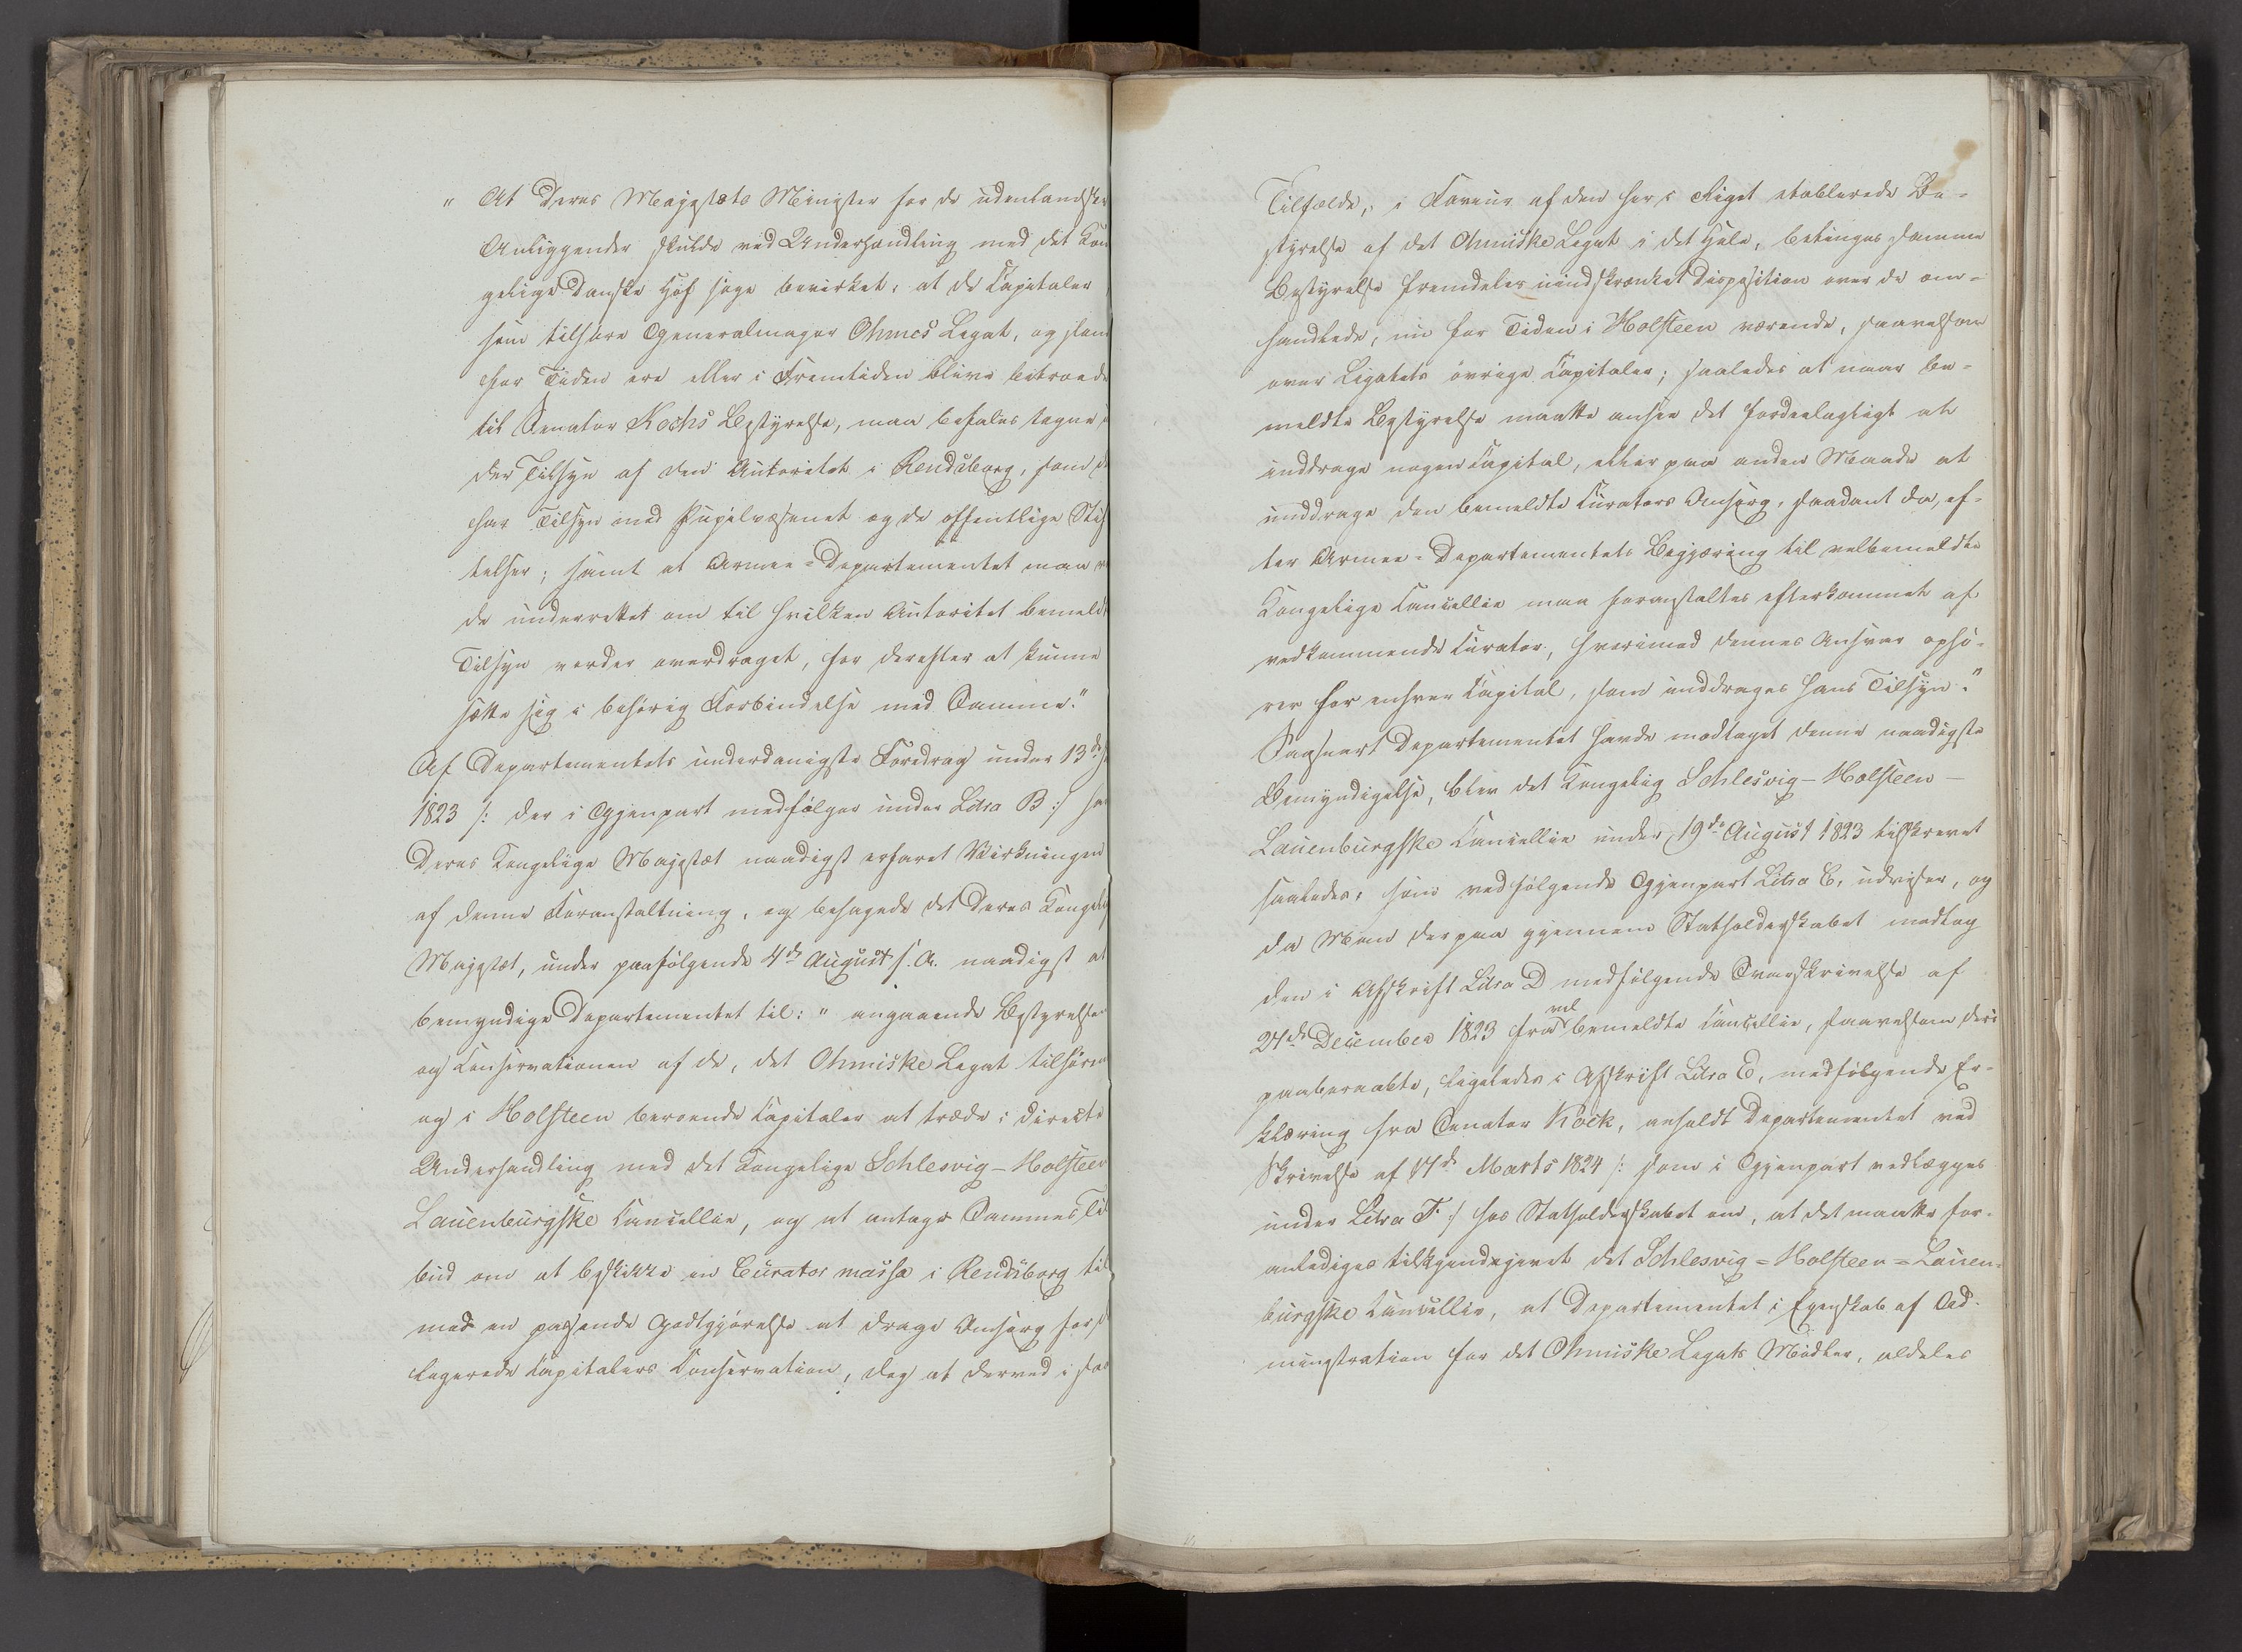 " At Deres Majestæts Minister for de udenlandske
Anliggender skulde ved Underhandling med det Kon
gelige Danske Hof søge bevirket, at de Kapitaler
som tilhøre Generalmajor Ohmes Legat, og som
for Tiden ere eller i Fremtiden blive betroede
til Senator Kochs Bestyrelse, maa befales tagne
der Tilsyn af den Autoritet i Rendsborg, som
har Tilsyn med Pupilvæsenet og de offentlige Stif
telser; samt at Armee-Departementet maa
de underrettet om til hvilken Autoritet bemeldt
Tilsyn vorder overdraget, for derefter at kunne
sætte sig i behørig Forbindelse med Samme."
Af Departementets underdanigste Foredrag under 13de
1823 /: der i Gjenpart medfølger under Litra B :/ har
Deres Kongelige Majestæt naadigst erfaret Virkningen
af denne Foranstaltning, og behagede det Deres Kongelig
Majestæt, under paafølgende 4de August s. A. naadigst at
bemyndige Departementet til: " angaaende Bestyrelsen
og Conservationen af de, det Ohmiske Legat tilhøren
og i Holsteen beroende Kapitaler at træde i directe
Underhandling med det Kongelige Schlesvig-Holsteen
Lauenburgske Cancellie, og at antage Sammes Til
bud om at beskikke en Curator massæ i Rendsborg til
mod en passende Godtgjørelse at drage Omsorg for
Legerede Kapitalers Conservation, dog at derved i
Tilfælde, i Faveur af den her i Riget etablerede Be-
styrelse af det Ohmiske Legat i det Hele, betinges samme
Bestyrelse fremdeles uindskrænket Disposition over de om-
handlede, nu for Tiden i Holsteen værende, saavelsom
over Legatets øvrige Kapitaler; saaledes at naar be-
meldte Bestyrelse maatte ansee det fordeelagtigt at
inddrage nogen Kapital, eller paa anden Maade at
unddrage den bemeldte Curators Omsorg, saadant da, ef-
ter Armee-Departementets Begjæring til velbemeldte
Kongelige Cancellie maa foranstaltes efterkommet af
vedkommende Curator, hvorimod dennes Ansvar ophø-
rer for enhver Kapital, som unddrages hans Tilsyn."
Saasnart Departementet havde modtaget denne naadigste
Bemyndigelse, blev det Kongelig Schlesvig-Holsteen-
Lauenburgske Cancellie under 19de August 1823 tilskrevet
saaledes, som vedfølgende Gjenpart Litra C. udviser, og
da Man derpaa gjennem Statholderskabet modtog
den i Afskrift Litra D medfølgende Svarskrivelse af
27de December 1823 fra velbemeldte Cancellie, saavelsom deri
paaberaabte, ligeledes i Afskrift Litra E, medfølgende Er-
klæring fra Senator Kock, anholdt Departementet ved
Skrivelse af 17de Marts 1824 /: som i Gjenpart vedlægges
under Litra F :/ hos Statholderskabet om, at det maatte for-
anlediges tilkjendegivet det Schlesvig-Holsteen-Lauen-
burgske Cancellie, at Departementet i Egenskab af Ad-
ministration for det Ohmiske Legats Midler, aldeles